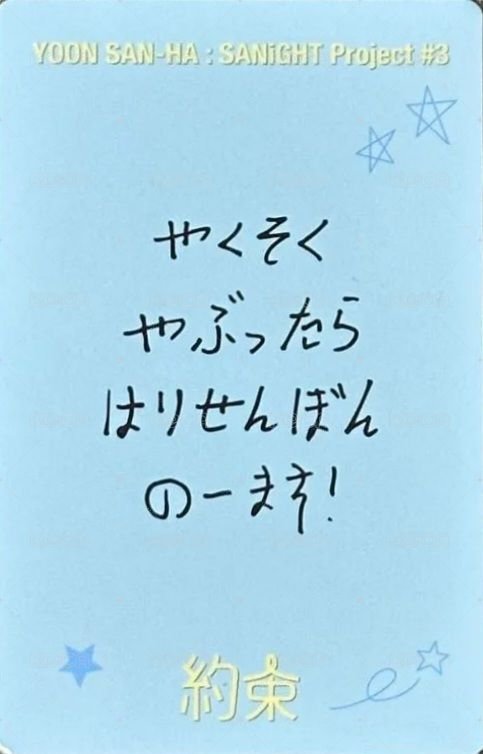 YOON SAN-HA : SANiGHT Project #3
やくそく
やぶったら
はりせんぼん
のーます!
約束